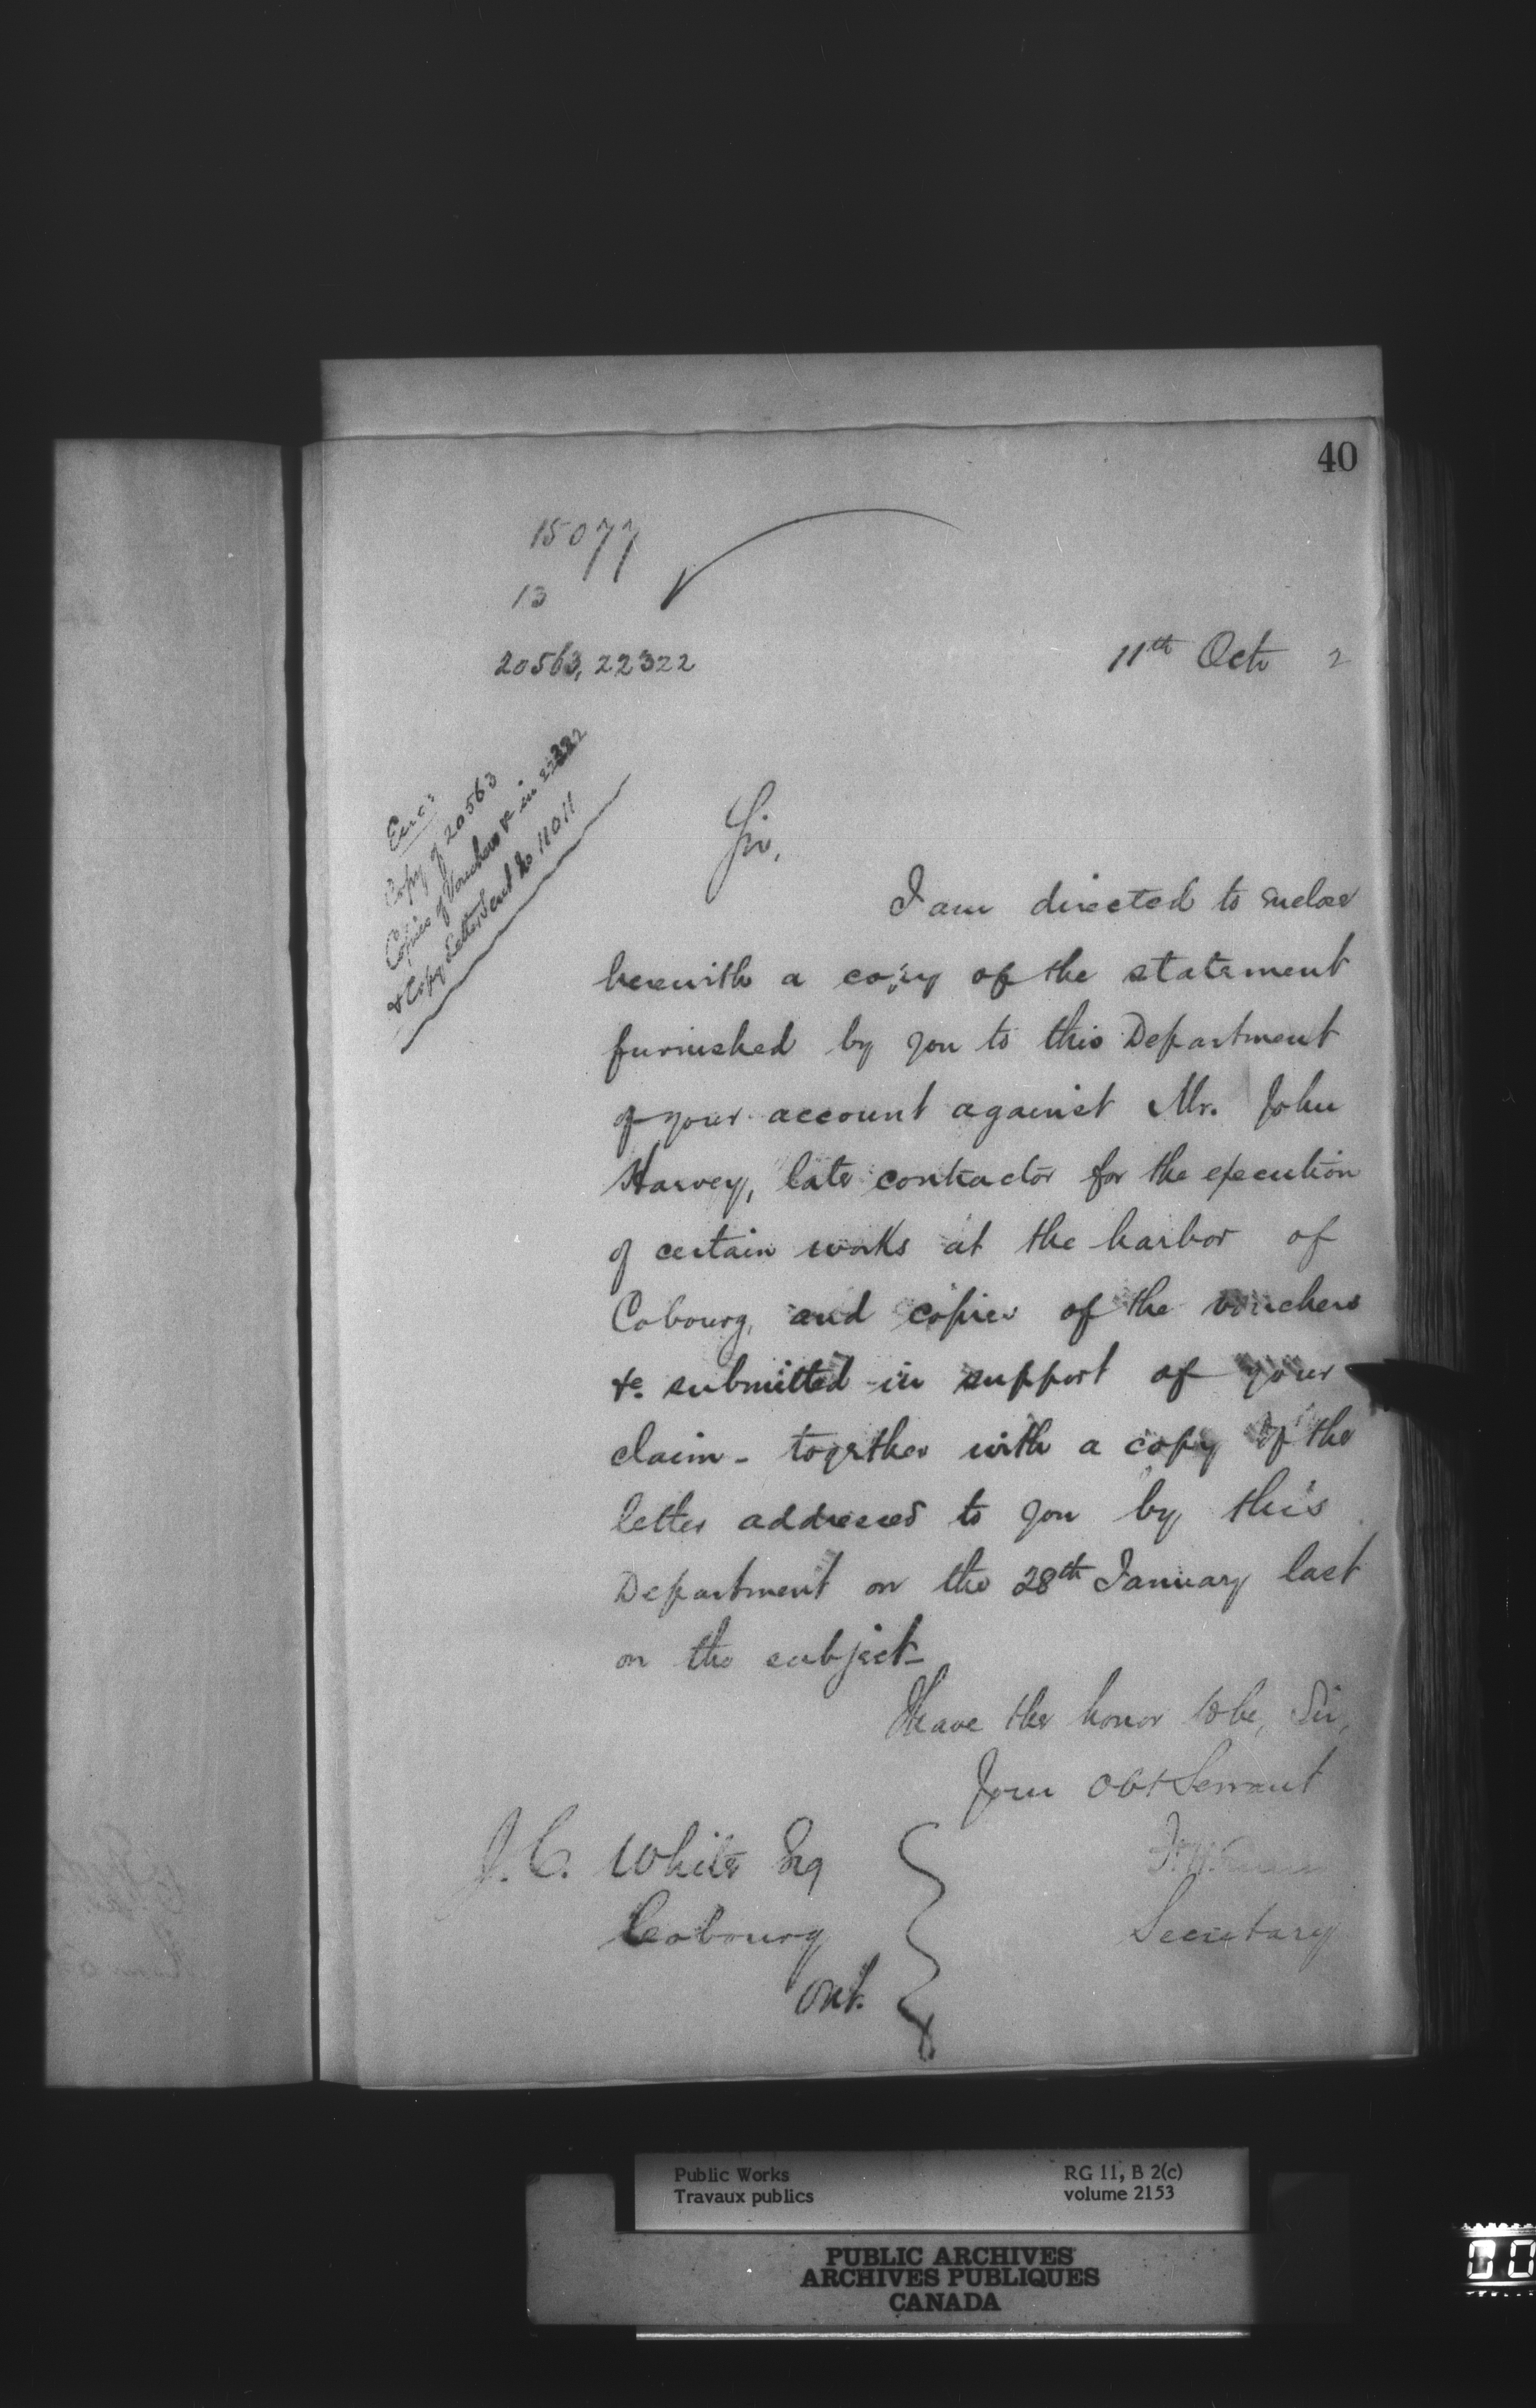 40
15077
13
20563, 22322
11th Octr 2
Enc:
Copy of 20563
Copies of Vouchers &c in 22322
& Copy Letter Sent No 11011
Sir,
I am directed to enclose
herewith a copy of the statement
furnished by you to this Department
of your account against Mr. John
Harvey, late contractor for the execution
of certain works at the harbor of
Cobourg, and copies of the vouchers
&c. submitted in support of your
claim - together with a copy of the
letter addressed to you by this
Department on the 28th January last
on the subject -
I have the honor to be, Sir,
Your Obt Servant
J. C. White Esq
Cobourg
Ont.
Secretary
Public Works
Travaux publics
RG 11, B 2(c)
volume 2153
PUBLIC ARCHIVES
ARCHIVES PUBLIQUES
CANADA
00